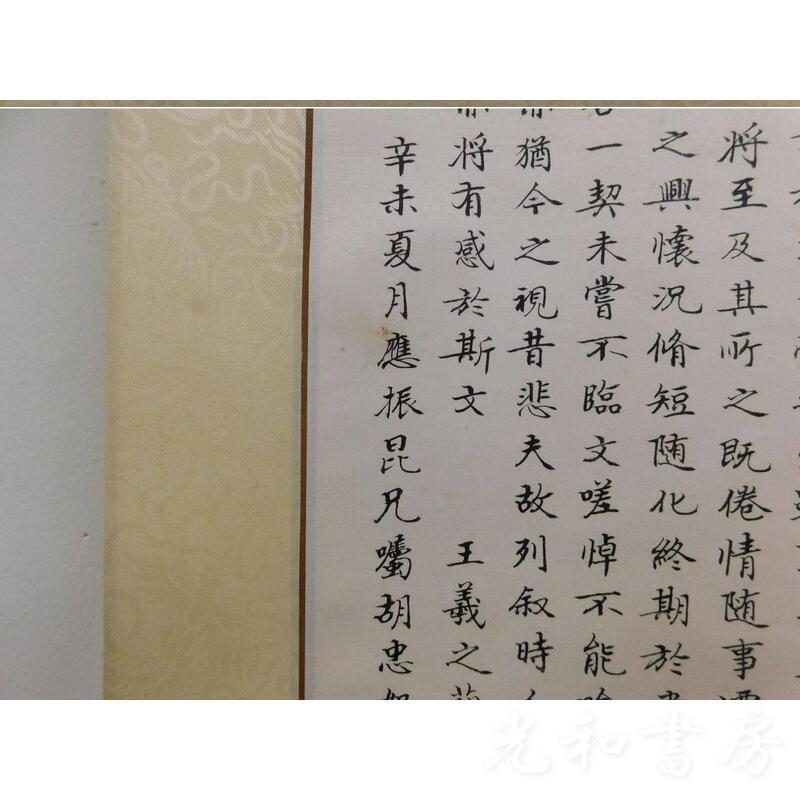 将至及其所之既倦情随事
之興懷況脩短随化終期於
一契未嘗不臨文嗟悼不能
猶今之視昔悲夫故列叙時
将有感於斯文 王羲之
辛未夏月應振昆兄囑胡忠
光和書房